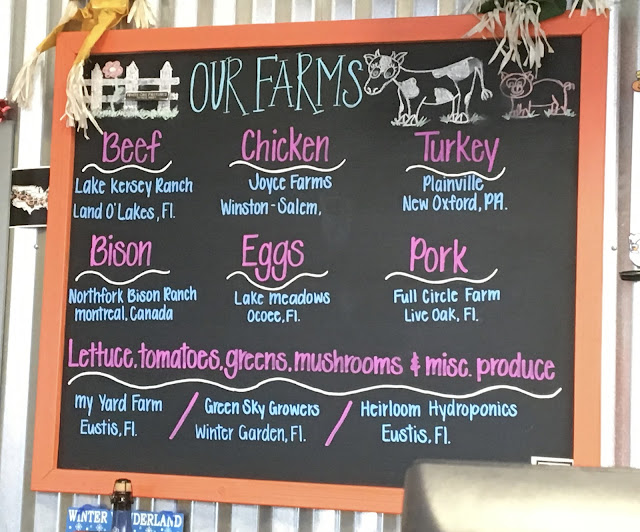 OUR FARMS
Beef
Lake Kersey Ranch
Land O'Lakes, Fl.
Chicken
Joyce Farms
Winston-Salem,
Turkey
Plainville
New Oxford, PA.
Bison
Northfork Bison Ranch
montreal, Canada
Eggs
Lake meadows
Ocoee, Fl.
Pork
Full Circle Farm
Live Oak, Fl.
Lettuce, tomatoes, greens, mushrooms & misc. produce
my Yard Farm
Eustis, Fl.
/
Green Sky Growers
Winter Garden, Fl.
/
Heirloom Hydroponics
Eustis, Fl.
WINTER